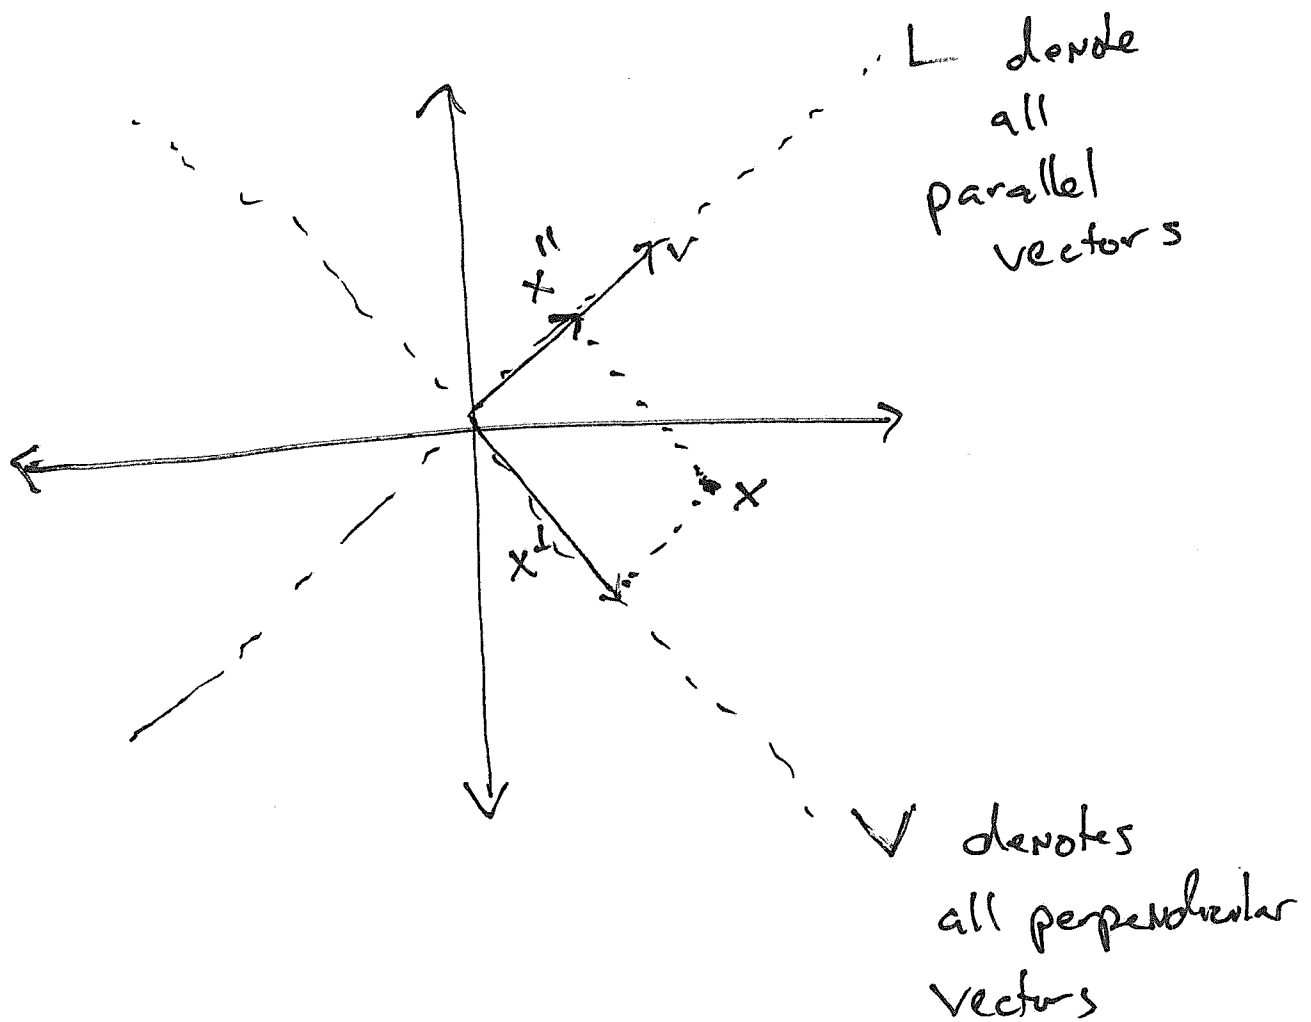 L denote
all
parallel
vectors
v
x"
x
x⊥
V denotes
all perpendicular
vectors